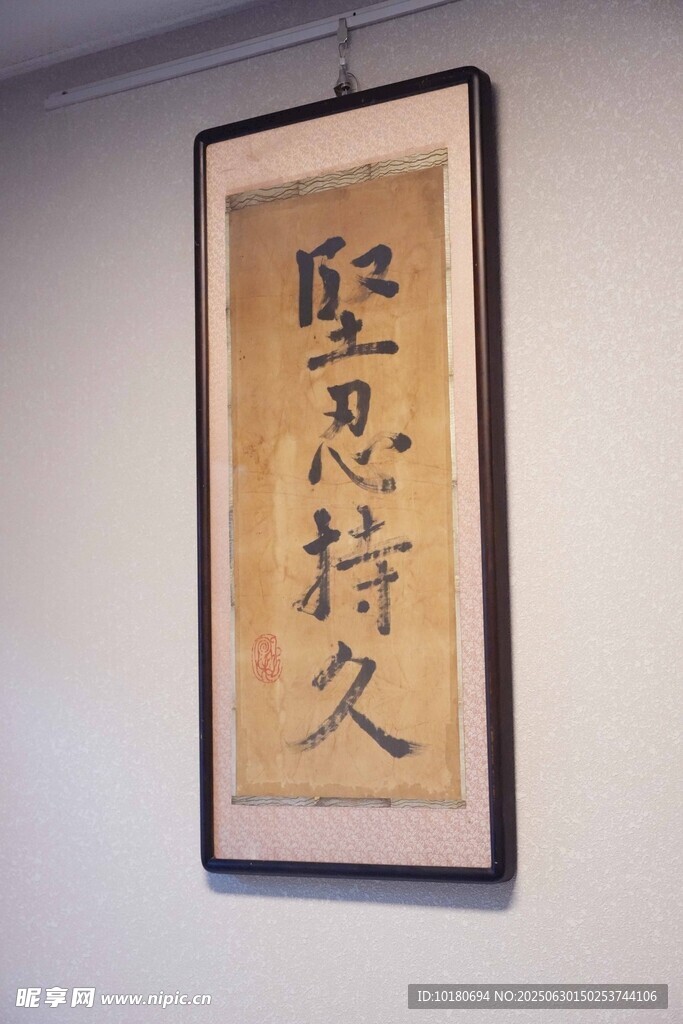 堅忍持久
昵享网 www.nipic.cn
ID:10180694 NO:20250630150253744106